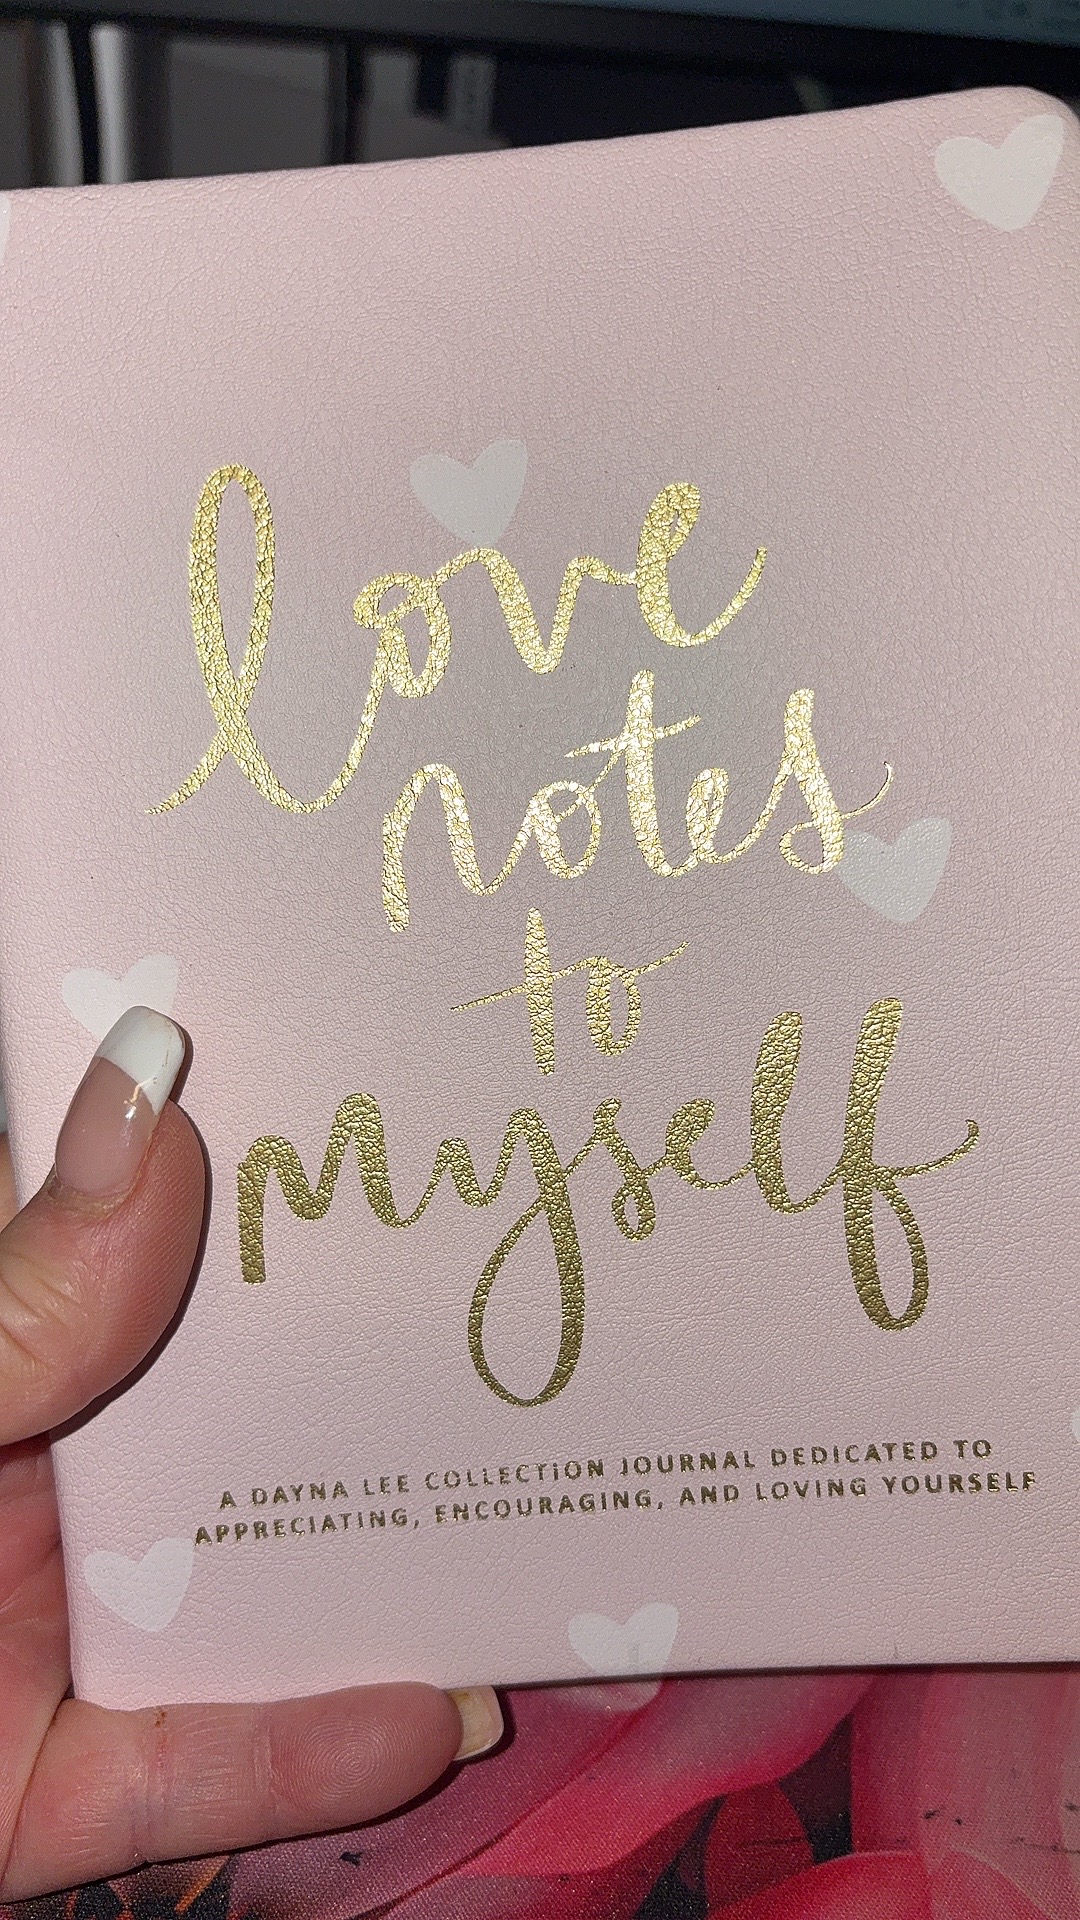 love
notes
to
myself
A DAYNA LEE COLLECTION JOURNAL DEDICATED TO
APPRECIATING, ENCOURAGING, AND LOVING YOURSELF